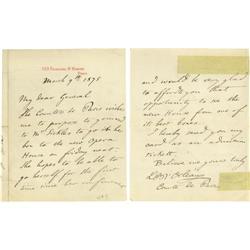 March 9th 1878
My dear General
The Countess de Paris wishes
me to propose to you and
to Mrs Sickles to go to her
box to the new Opera
House on friday next.
She hopes to be able to
go herself for the first
time since her
and would be very glad
to afford you that
opportunity to see the
new House from one of
its best boxes.
I hereby send you my
card as an admission
ticket.
Believe me yours truly
Comte de Paris